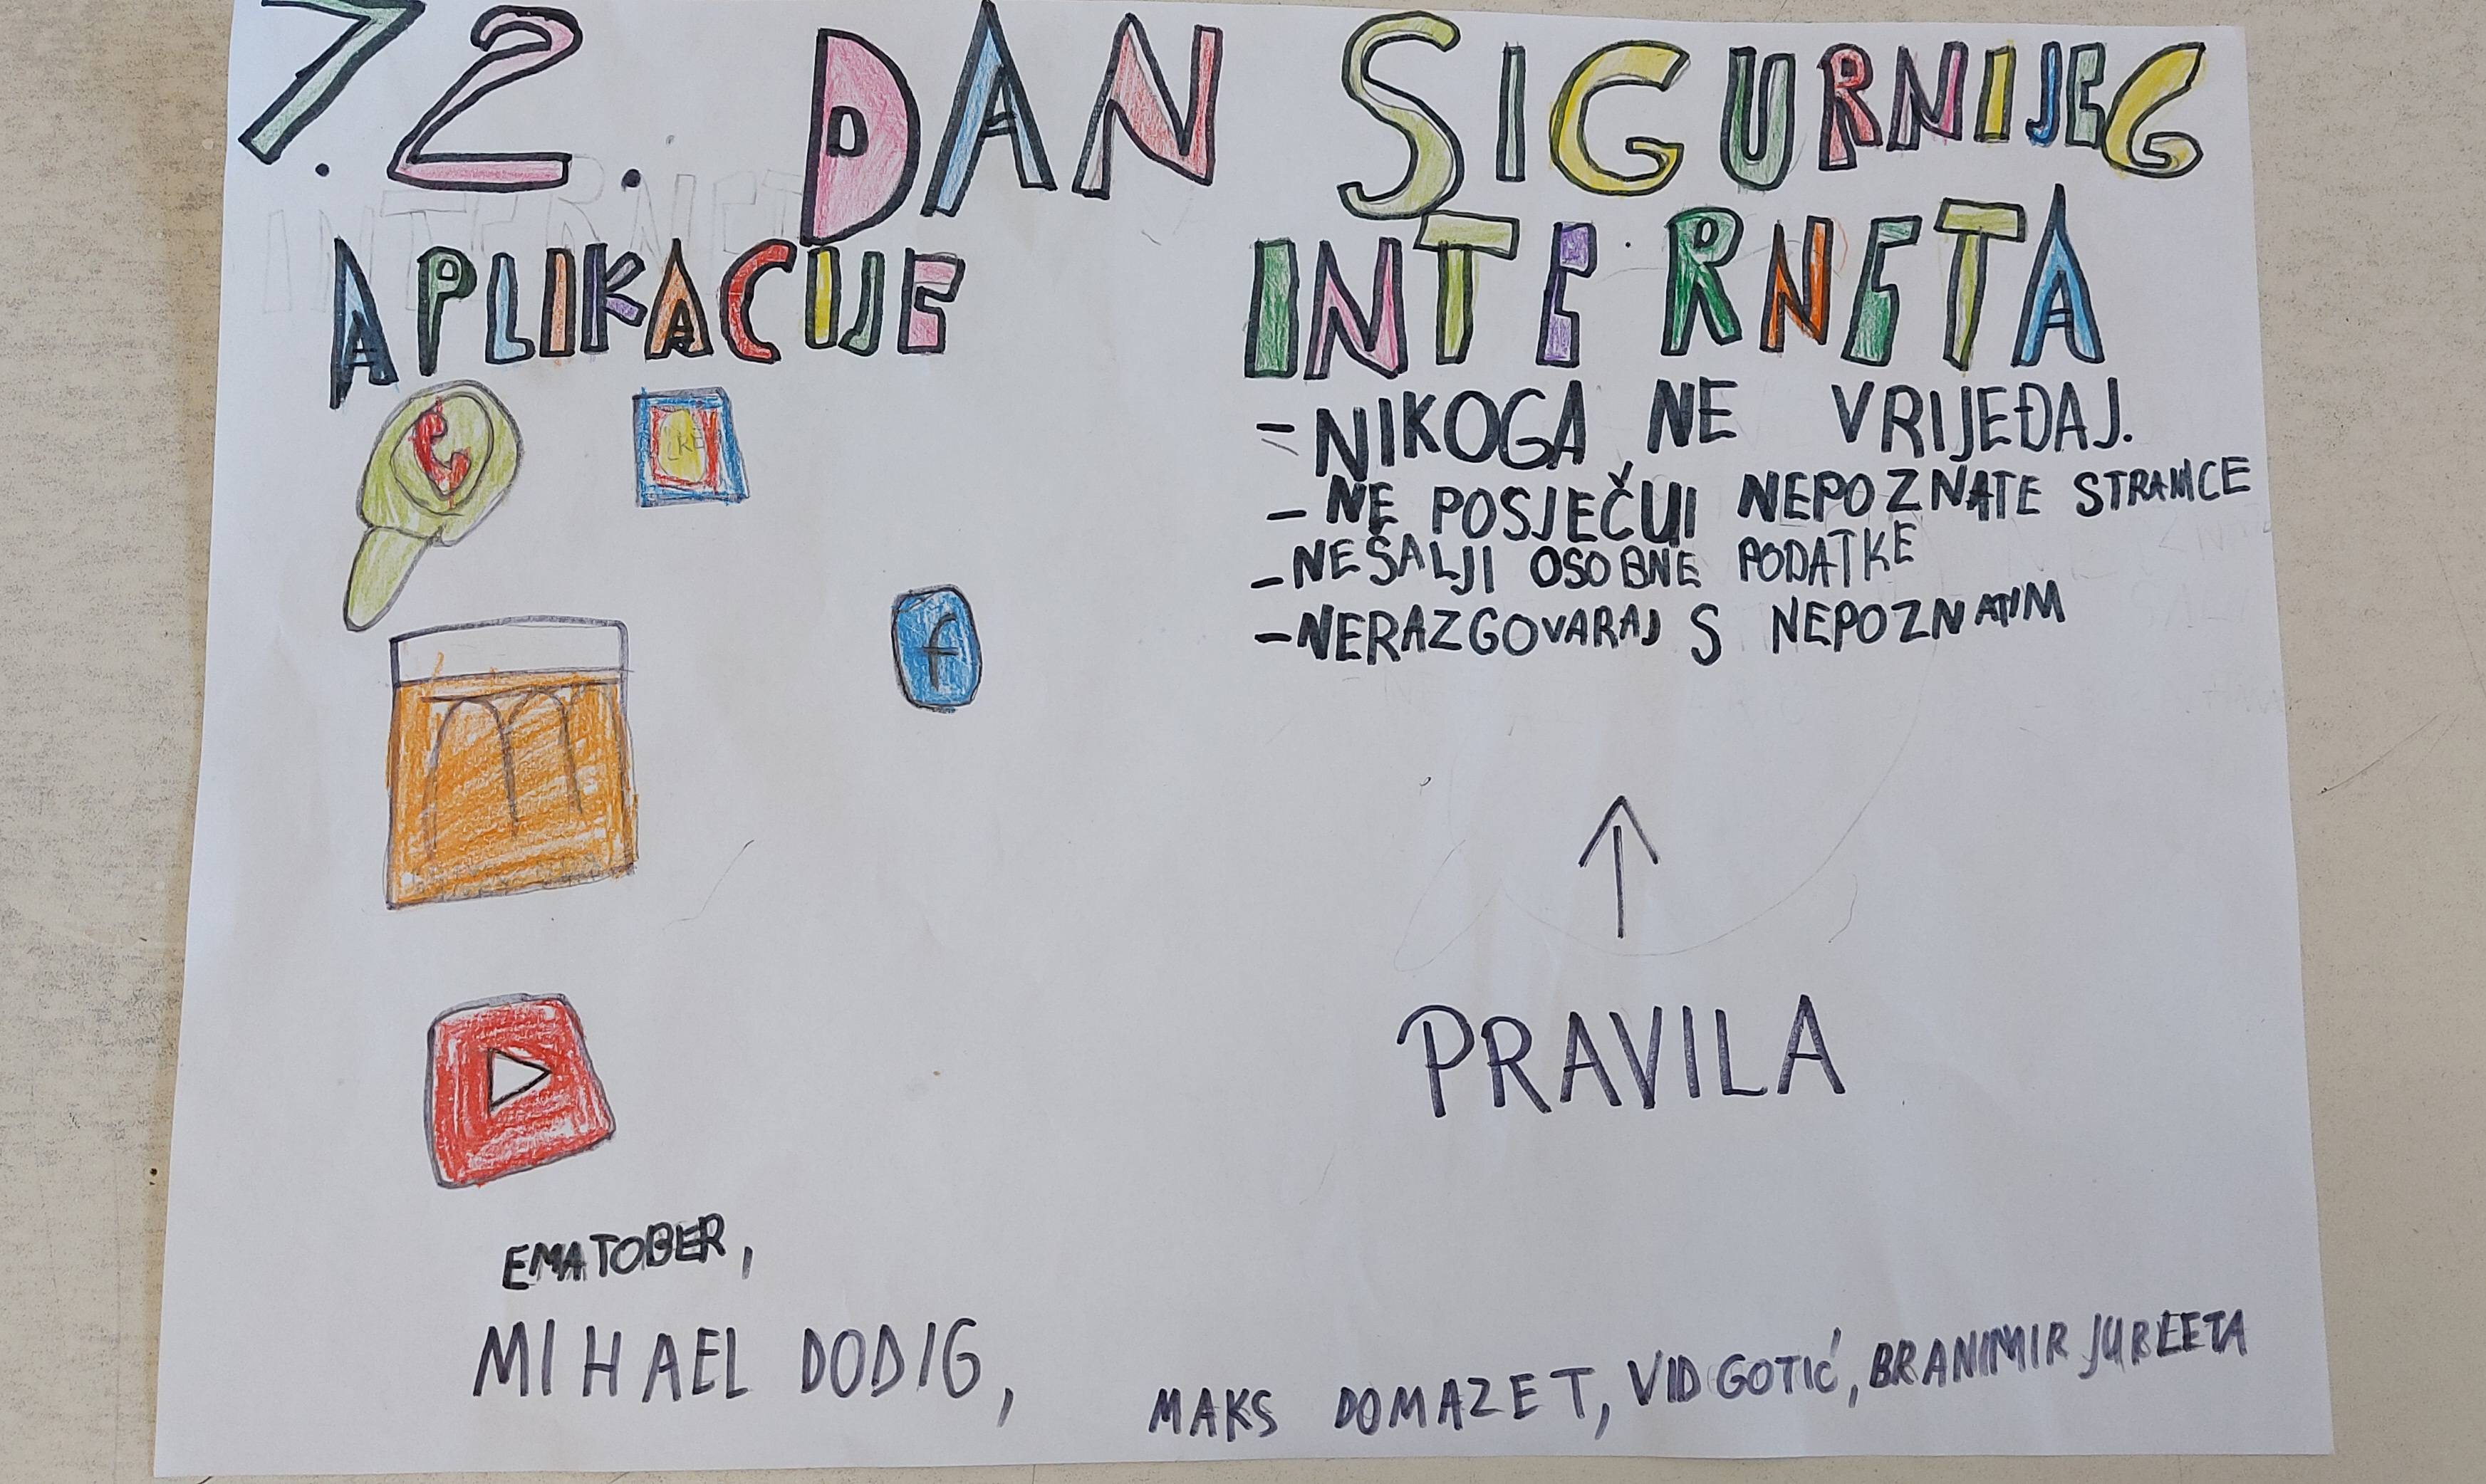 7.2. DAN SIGURNIJEG
INTERNETA
APLIKACIJE
f
- NIKOGA NE VRIJEĐAJ.
- NE POSJEČUJ NEPOZNATE STRANICE
- NE ŠALJI OSOBNE PODATKE
- NERAZGOVARAJ S NEPOZNATIM
PRAVILA
EMA TOBER,
MIHAEL DODIG,
MAKS DOMAZET, VID GOTIĆ, BRANIMIR